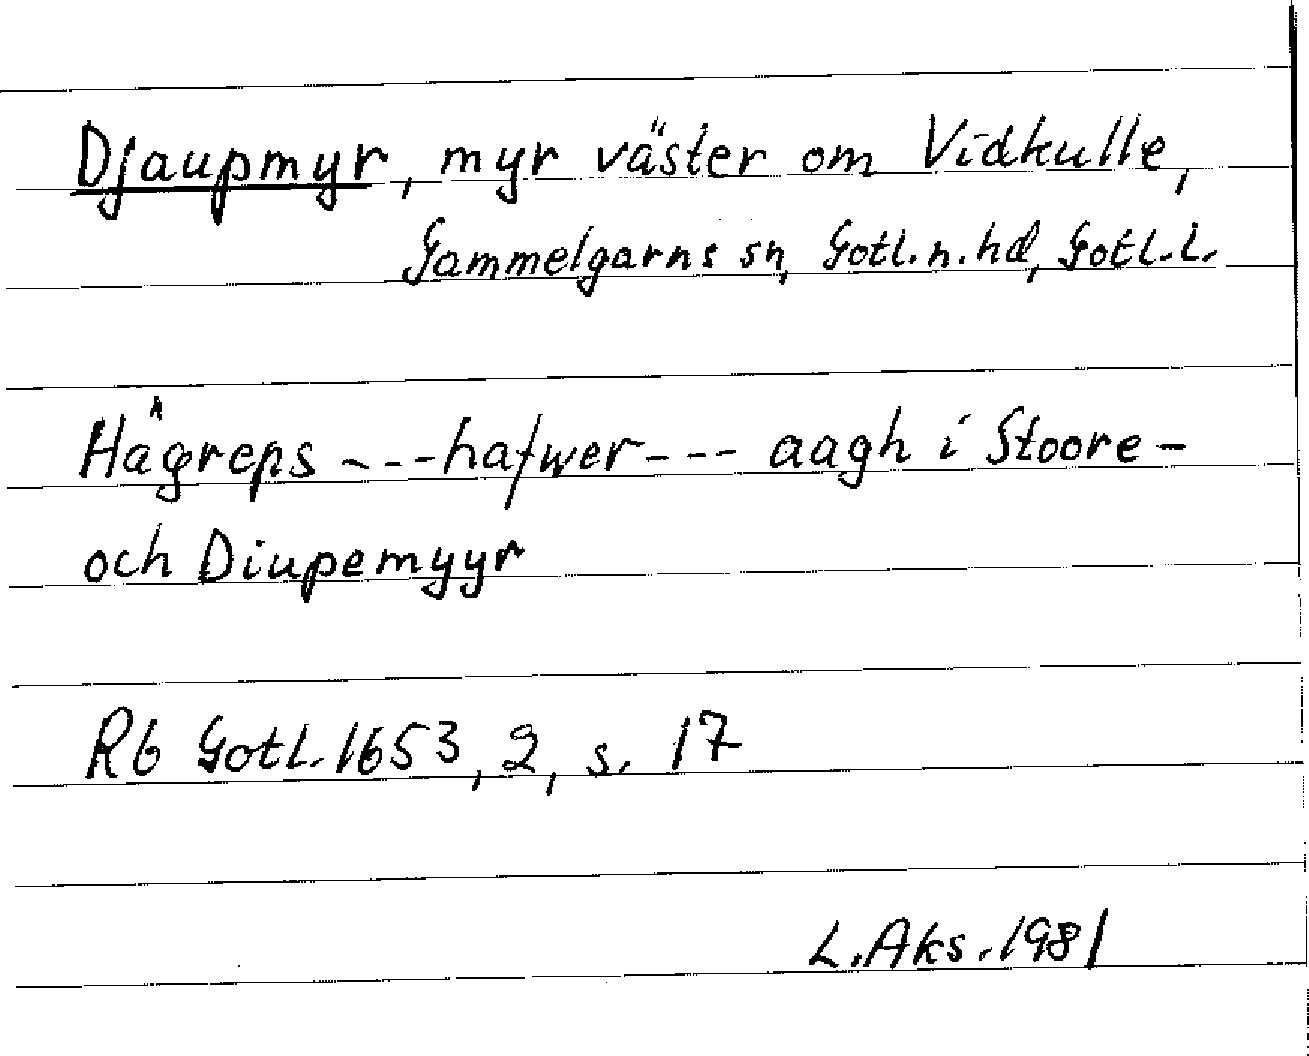 Djaupmyr, myr väster om Vidkulle,
Gammelgarns sn, Gotl. n. hd, Gotl. L.
Hägreps - - - hafwer - - - aagh i Stoore-
och Diupemyyr
Rb Gotl. 1653, 2, s. 17
L. Aks. 1981